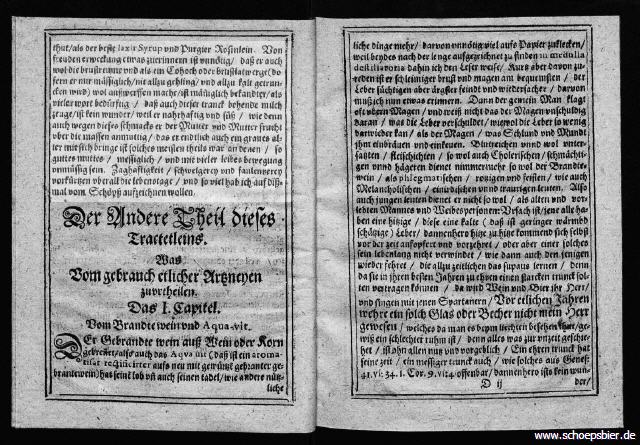 thut/als der beste laxir Syrup vnd Purgier Rosenlein. Von
freuden erweckung etwas zuerinnern ist vnnötig/ daß er auch
wol die brust raume vnd als ein Lohoch oder brustlatwerge(do
fern er nur mässiglich/nit allzu gehling/ vnd allzu kalt getrun-
cken wird) wol auswerffen mache/ist mäniglich bekandter/als
vieler wort bedürftig/ daß auch dieser tranck hohende milch
zeuge/ist kein wunder/ weil er nahrhafftig vnd süß/ wie denn
auch wegen dieses schmacks er der Mutter vnd Mutter frucht
vber die massen anmutig/ das er endlich auch ein graues al-
ter mit sich bringe ist solches meisten theils war an denen/ so
guttes muttes/ messiglich/ vnd mit vieler leibes bewegung
vnmüssig sein. Zaghafftigkeit/ schwelgerey vnd faulenzerey
verkürtzen vberall die lebenotage/ vnd so viel hab ich auff diß-
mal vom Schöpß aufzeichnen wollen.
Der Andere Theil dieses
Tractetleins.
Was
Vom gebrauch etlicher Artzneyen
zuvrtheilen.
Das I. Capitel.
Vom Brandtewein vnd Aqua-vit.
DEr Gebrandte wein auß Wein oder Korn
gebrennet/also auch das Aqva vit (daß ist ein aroma-
tisat rectificirter auffs neu mit gewürtz gebranter ge-
brantewein) hat seine lob vñ auch seinen tadel/ wie andere nütz-
liche
liche dinge mehr/ darvon vnnötig viel aufs Papier zuklecken/
weil beydes nach der lenge auffgezeichnet zu finden in medulla
destillatoria dahin ich den Leser weise/ Kurtz aber davon zu-
reden ist er schleimiger brust vnd magen am bequemsten/ der
Leber süchtigen aber ärgster feindt vnd wiedersacher/ darvon
muß ich nun etwas erinnern. Dann der gemein Man klagt
oft vbern Magen/ vnd weiß nicht das der Magen vnschuldig
daran/ was die Leber verschuldet/ wiewol die Leber so wenig
darwieder kan/ als der Magen/ was Schlund vnd Mundt
ihm einbrauen vnd einkeuen. Blutreichen vnnd wol vnter-
satzten/ fleischichten/ so wol auch Cholerischen/ schmächti-
gen vnnd hägeren dienet nimmermehr so wol der Brandte-
wein/ als phlegmatischen/ rotzigen vnd feisten/ wie auch
Melancholischen/ einvisischen vnnd traurigen leuten. Also
auch jungen leuten dienet er nicht so wol/ als alten vnd ver-
lebten Mannes vnd Weibespersonen: Vrsach ist/ jene alle ha-
ben eine hitzige/ diese eine kalte (daß ist geringer wärmbd
schätzige) Leber/ dannenhero hitze zu hitze kommend sich selbst
vor der zeit aufopfert vnd vorzehret/ oder aber einer solches
sein lebenlang nicht verwindet/ wie dann auch den jenigen
wieder fehret/ die allzu zeitlichen das supaus lernen/ denn
da sie in ihren besten Jahren zu ehren einen starcken trunck sol-
ten vertragen können/ da wird Wein vnd Bier ihr Herr/
vnd singen mit jenen Spartanern/ Vor etlichen Jahren
wehre ein solch Glas oder Becher nicht mein Herr
gewesen/ welches da man es beym liechten besehen thut/ ge-
wiß ein schlechter ruhm ist/ denn alles was zur vnzeit geschie-
het/ ist ohn allen nutz vnd vorgeblich/ Ein ehren trunck hat
seine zeit/ ein messiger trunck auch/ wie solches aus Genes:
41. vi: 34. 1. Cor. 9. vi: 4 offenbar/ dannenhero ists kein wun-
D ij
der/
www.schoepsbier.de